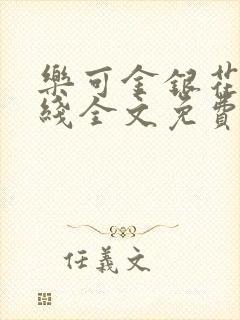 樂可金銀花
綫全文免費
任義文